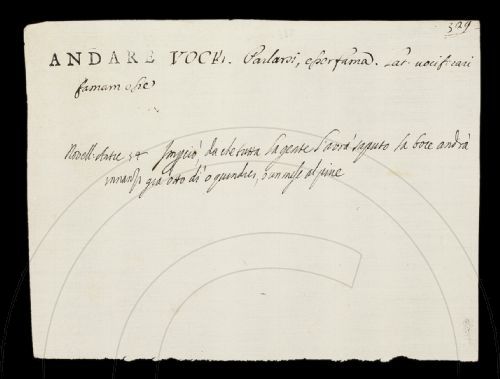 329
ANDARE VOCE. Parlarsi, esser fama. Lat. vocificari
famam esse
Novell. Antic 54 Impciò da che tutta la gente l'avrà saputo la boce andrà
innanzi già otto dì o quindici, o un mese al fine